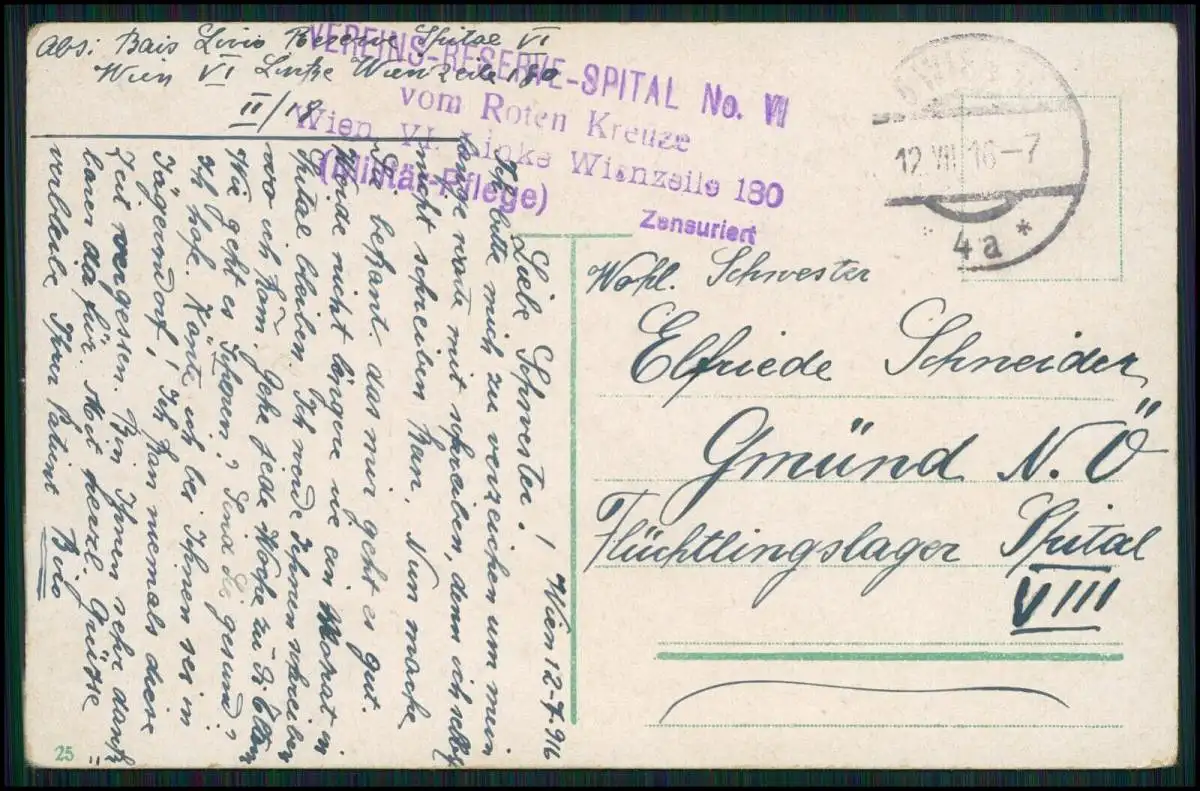 Abs: Bais Livio Reserve Spital VI
Wien VI Linke Wienzeile 180
II/18
VEREINS-RESERVE-SPITAL No. VI
vom Roten Kreuze
Wien, VI. Linke Wienzeile 180
(Militär-Pflege)
Zensuriert
12.VII.16-7
4a*
Wien 12-7-916
Liebe Schwester!
Ich bitte mich zu verzeichen um mein
lange warte mit schreiben, denn ich selbst
nicht schreiben kan. Nun mache
Sie bekant das mir geht es gut.
Werde nicht längere wie ein Monat in
Spital bleiben. Ich werde Ihnen schreiben
wo ich kom. Gehe jede Woche zu
Wie geht es Ihnen? Sind Sie gesund?
Ich hofe. Könte ich bei Ihnen sei in
Jägerndorf! Ich kan niemals diese
Zeit vergessen. Bin Ihnen sehr dank=
barer dafür. Mit herzl. Grüsse
verbleibe Ihrer Patient Livio
Wohl. Schwester
Elfriede Schneider
Gmünd N.Ö
Flüchtlingslager Spital
VIII
25